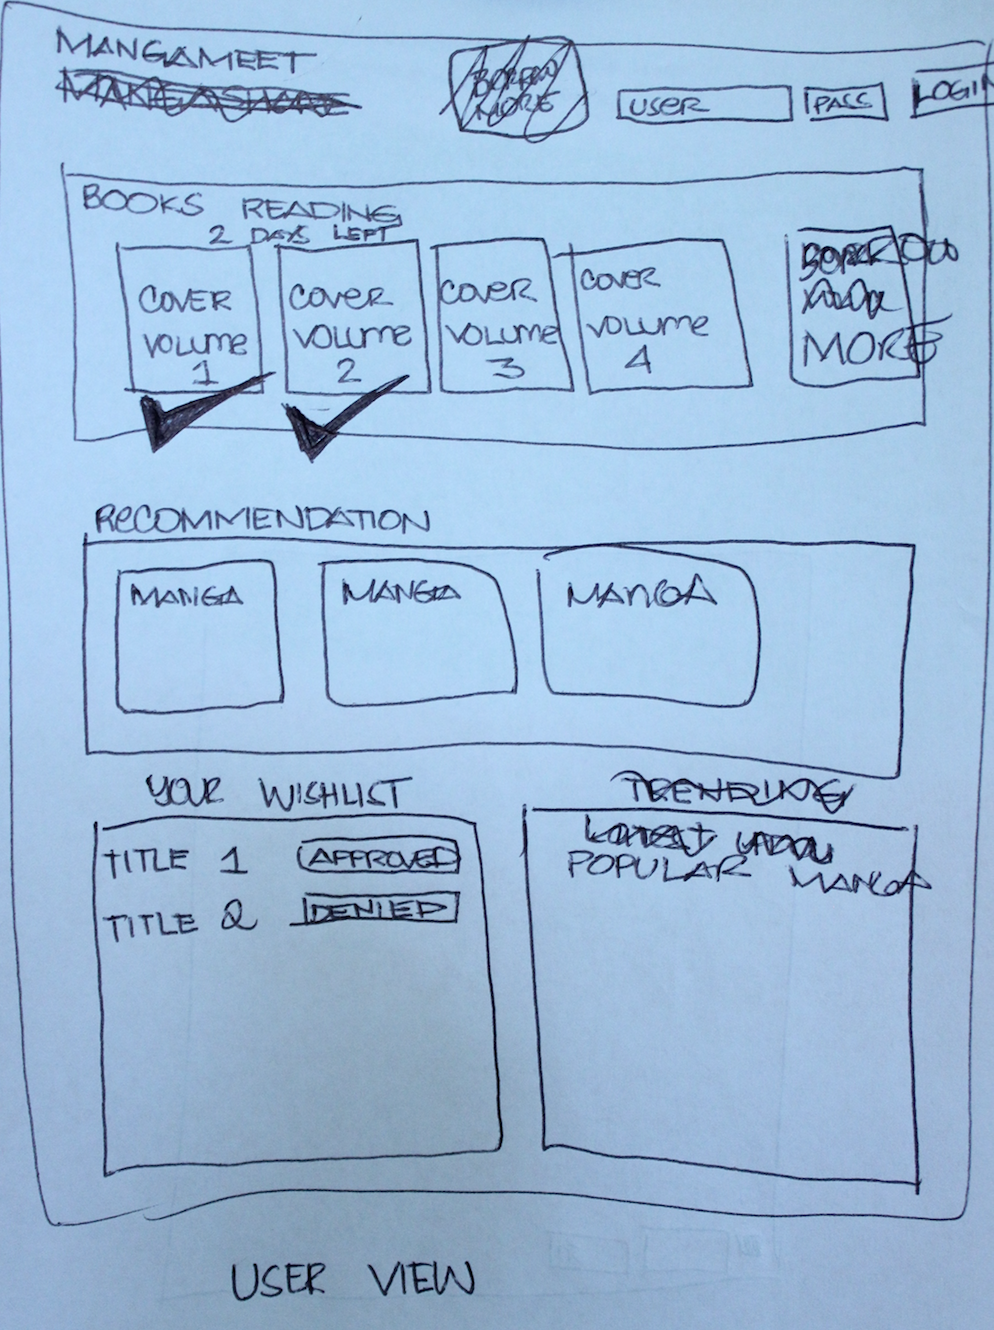 MANGAMEET
MANGASHARE
BORROW
MORE
USER
PASS
LOGIN
BOOKS READING
2 DAYS LEFT
COVER
VOLUME
1
COVER
VOLUME
2
COVER
VOLUME
3
COVER
VOLUME
4
BORROW
MORE
RECOMMENDATION
MANGA
MANGA
MANGA
YOUR WISHLIST
TITLE 1 APPROVED
TITLE 2 DENIED
TRENDING
POPULAR MANGA
USER VIEW